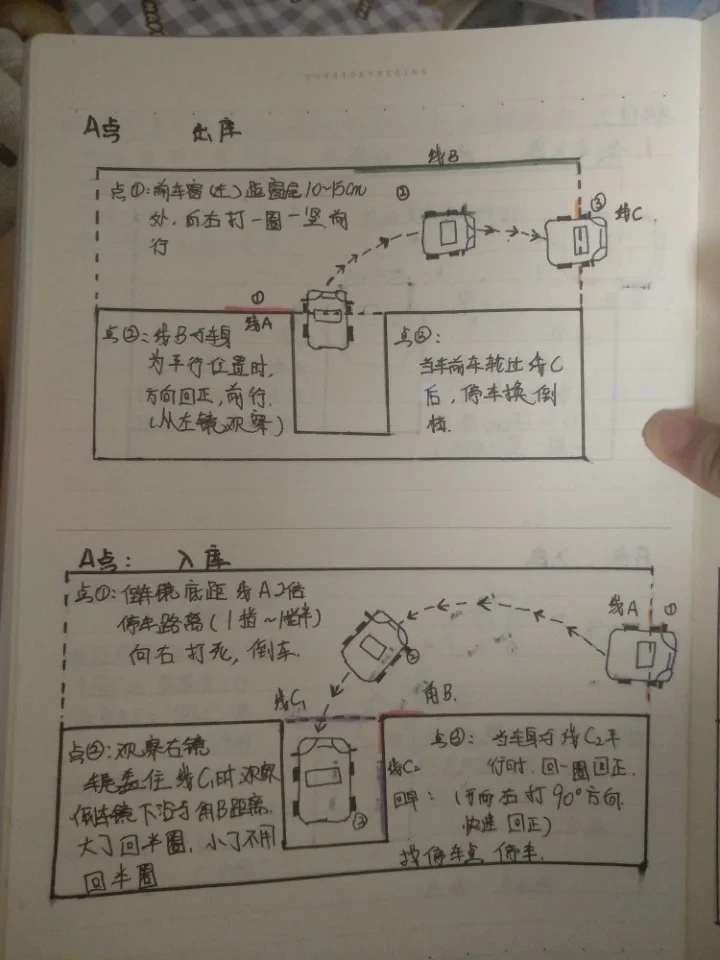 A点 出库
线B
点①:前车窗(左)距窗尾10~15cm
处,向右打一圈一竖前
行
②
③
线C
①
线A
点②:线B与车身
为平行位置时,
方向回正,前行.
(从左镜观察)
点③:
当车前车轮过线C
后,停车换倒
档.
A点: 入库
点①:倒车镜底距线A2倍
停车路离(1挡~1挡半)
向右打死,倒车.
线A
①
②
角B.
线C1
点②:观察右镜
车尾盖住线C1时,观察
倒车镜下沿与角B距离.
大了回半圈,小了不用
回半圈
③
点③:当车身与线C2平
行时,回一圈回正.
线C2
回早:(方向右打90°方向
快速回正)
找停车点停车.